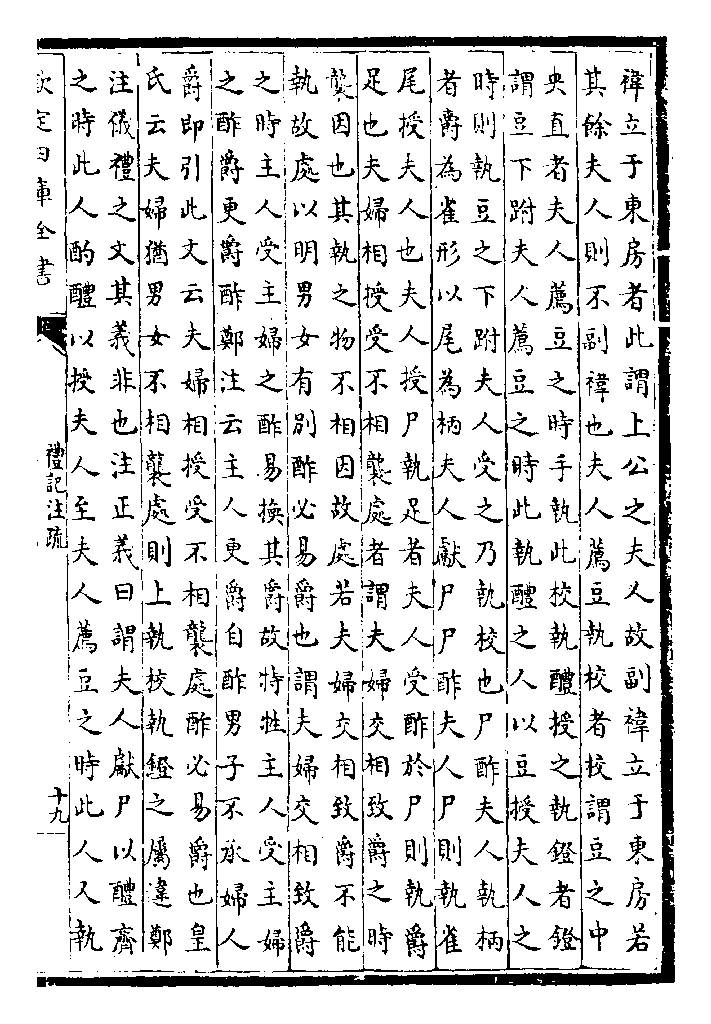 褘立于東房者此謂上公之夫人故副褘立于東房若
其餘夫人則不副褘也夫人薦豆執校者校謂豆之中
央直者夫人薦豆之時手執此校執醴授之執鐙者鐙
謂豆下跗夫人薦豆之時此執醴之人以豆授夫人之
時則執豆之下跗夫人受之乃執校也尸酢夫人執柄
者爵為雀形以尾為柄夫人獻尸尸酢夫人尸則執雀
尾授夫人也夫人授尸執足者夫人受酢於尸則執爵
足也夫婦相授受不相襲處者謂夫婦交相致爵之時
襲因也其執之物不相因故處若夫婦交相致爵不能
執故處以明男女有別酢必易爵也謂夫婦交相致爵
之時主人受主婦之酢易換其爵故特牲主人受主婦
之酢爵更爵酢鄭注云主人更爵自酢男子不承婦人
爵即引此文云夫婦相授受不相襲處酢必易爵也皇
氏云夫婦猶男女不相襲處則上執校執鐙之屬違鄭
注儀禮之文其義非也注正義曰謂夫人獻尸以醴齊
之時此人酌醴以授夫人至夫人薦豆之時此人又執
欽定四庫全書
禮記注疏
十九